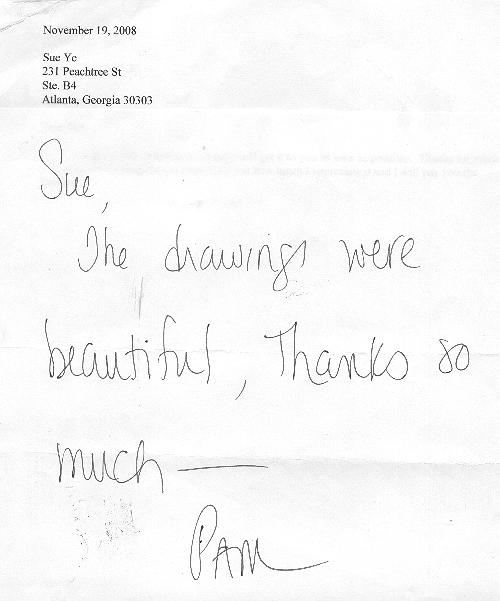 November 19, 2008
Sue Ye
231 Peachtree St
Ste. B4
Atlanta, Georgia 30303
Sue,
The drawings were
beautiful, Thanks so
much —
Pam